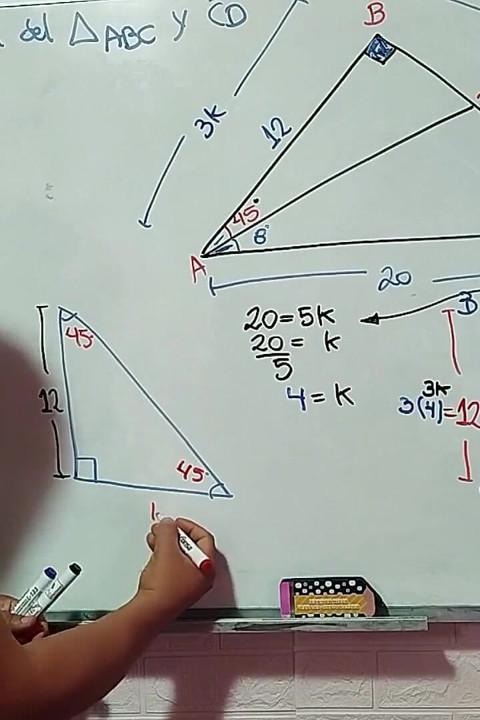 del △ABC y CD
B
3K
12
45°
8°
A
20
20=5K
20/5 = K
4 = K
B
3K
3(4)=12
45°
12
45°
1